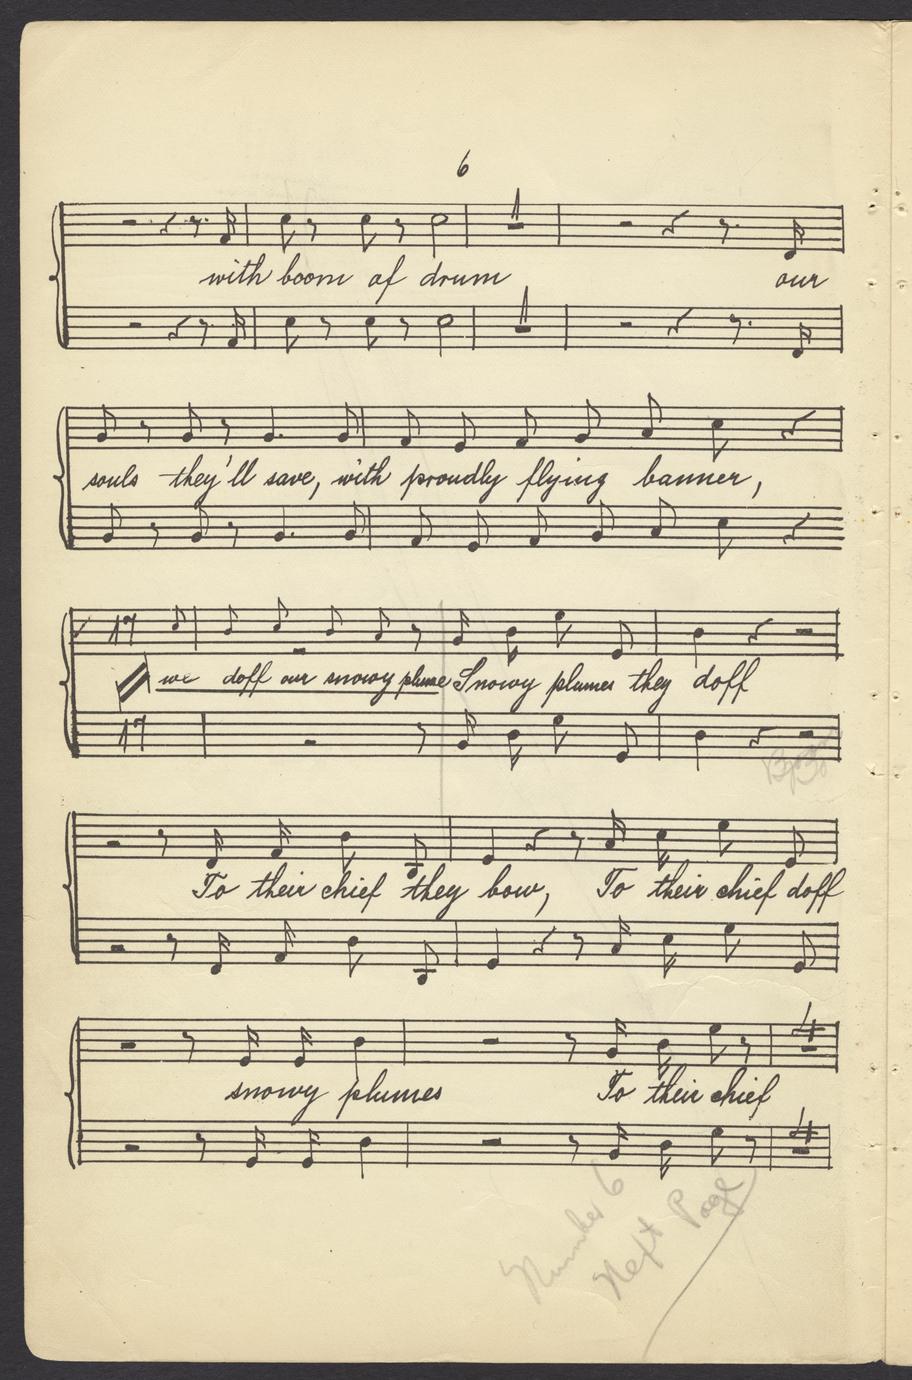 6
1
with boom of drum our
1
souls they'll save, with proudly flying banner,
17
we doff our snowy plume Snowy plumes they doff
17
To their chief they bow, To their chief doff
4
snowy plumes To their chief
4
Number 6
Next Page